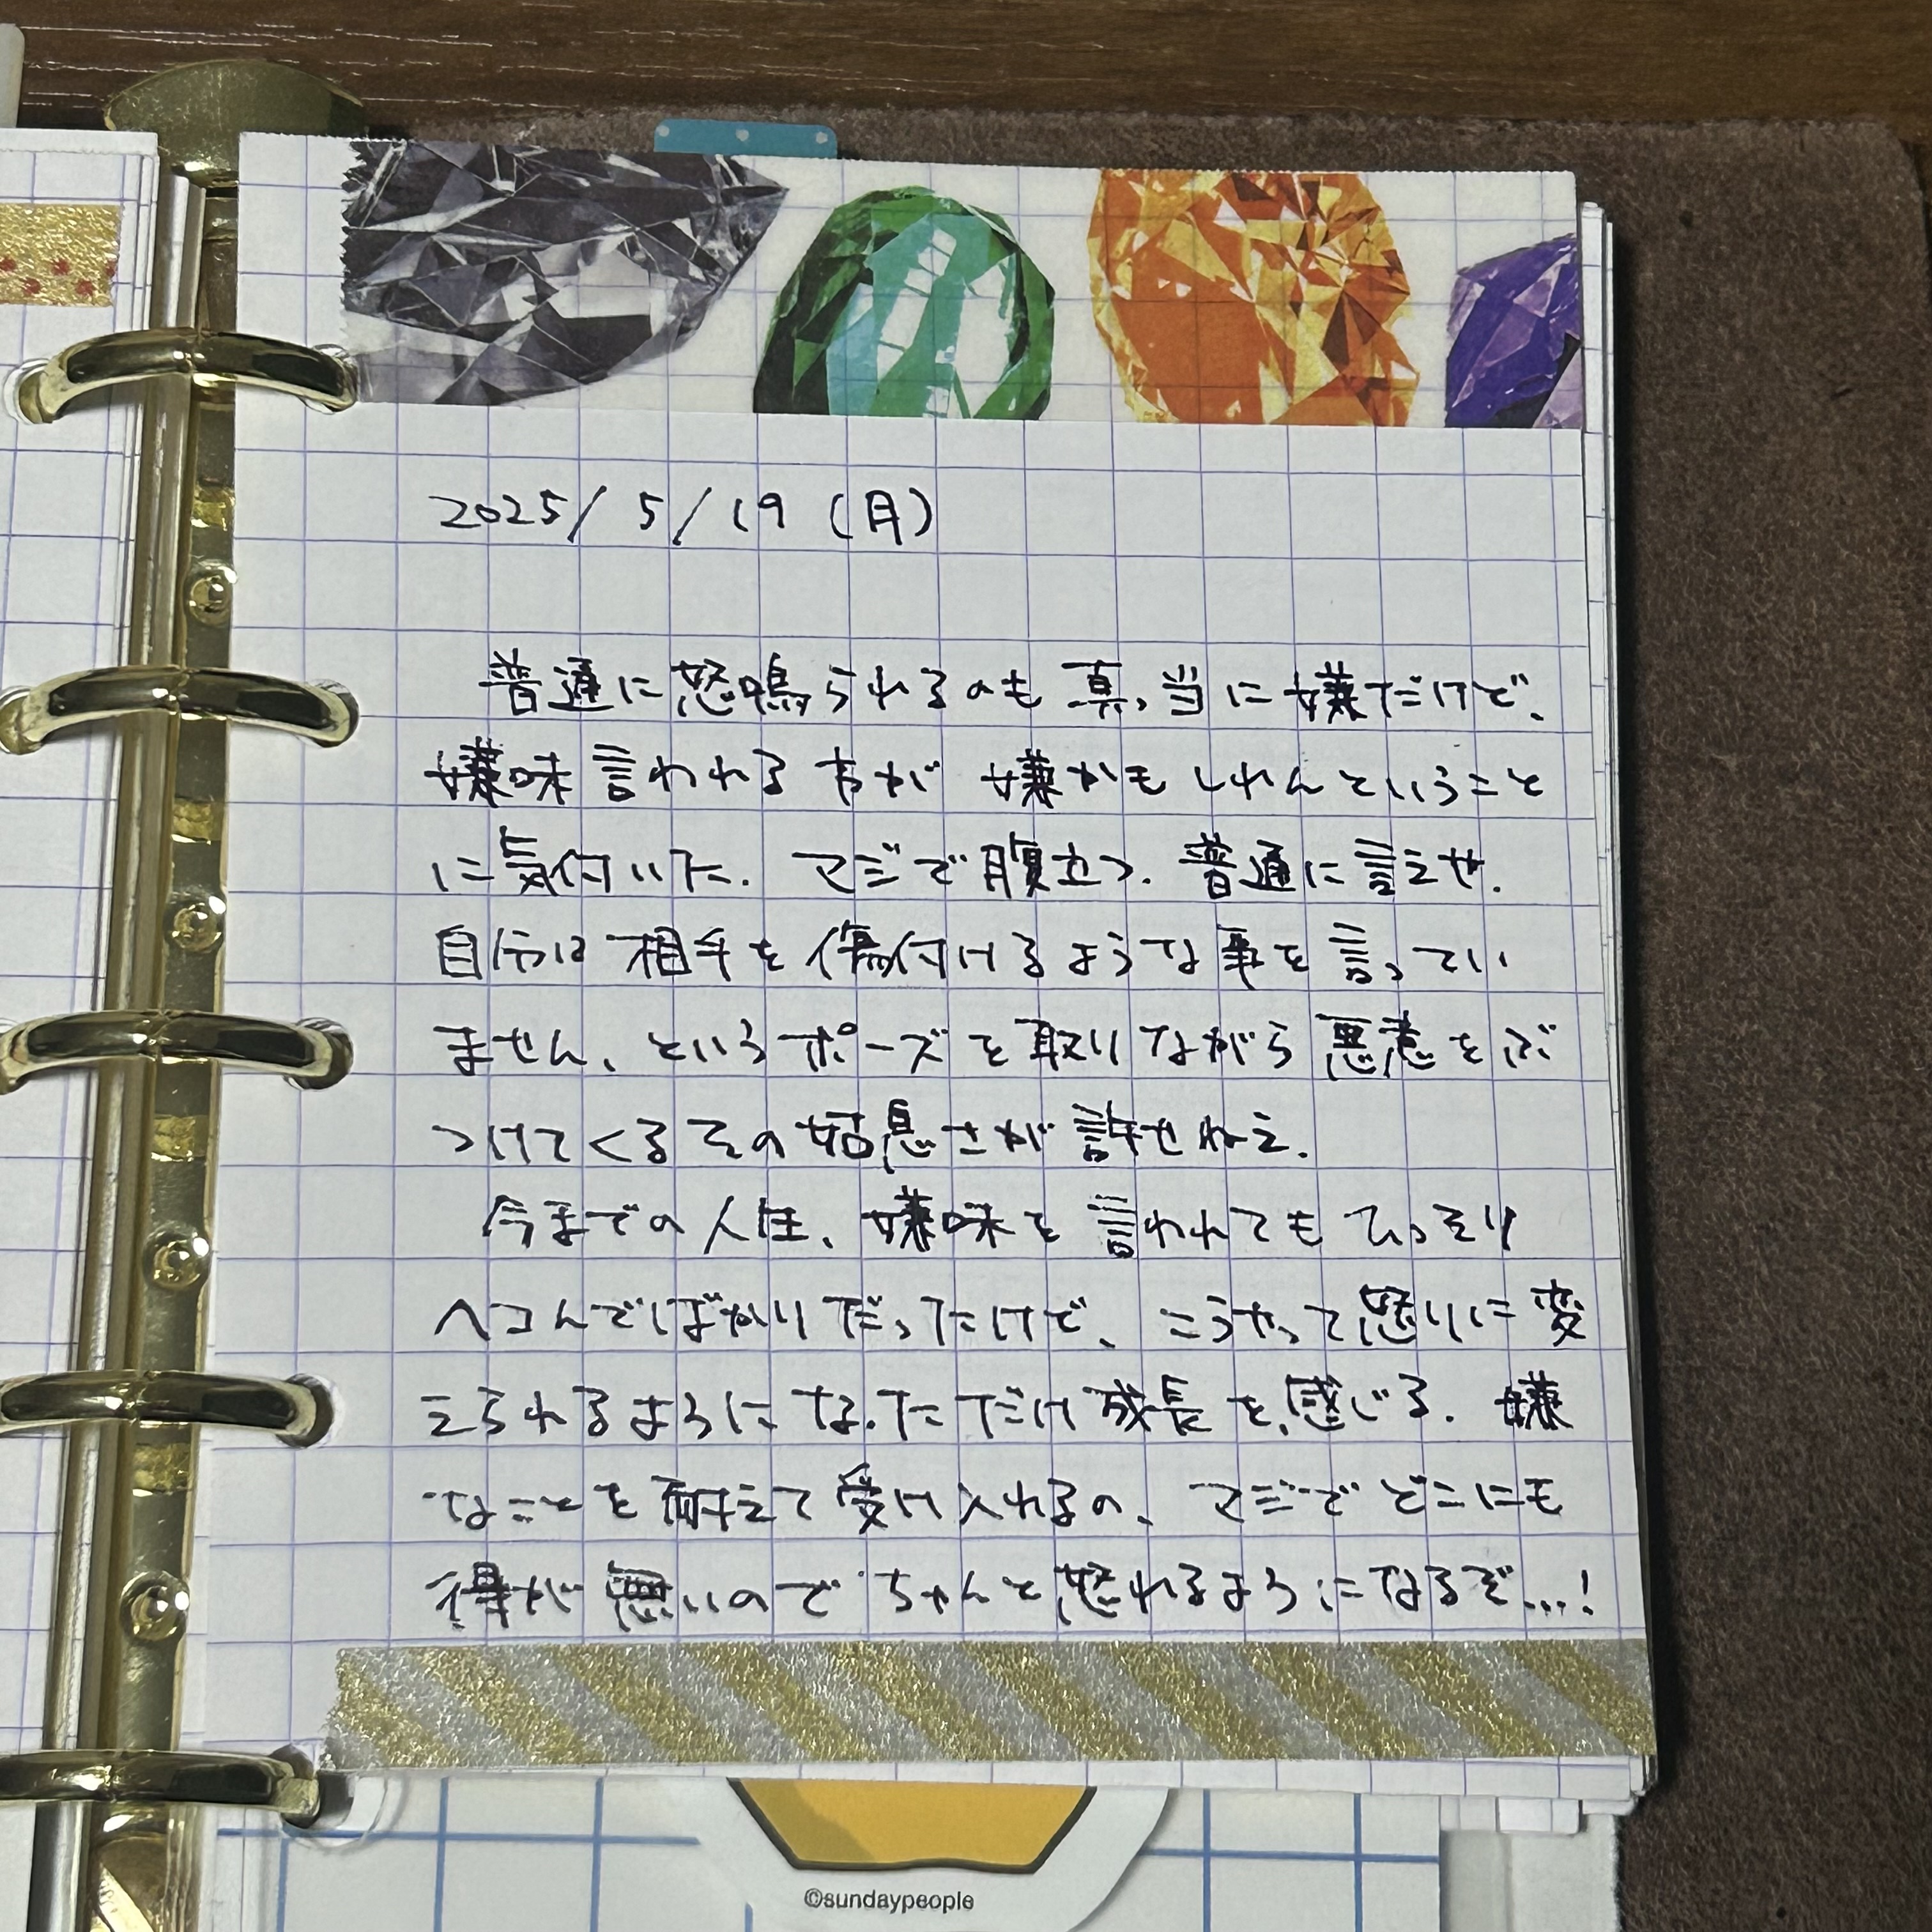 2025/5/19 (月)
普通に怒鳴られるのも真っ当に嫌だけど、
嫌味言われる方が嫌かもしれんということ
に気付いた。マジで腹立つ。普通に言えや。
自分は相手を傷付けるような事を言ってい
ません、というポーズを取りながら悪意をぶ
つけてくるその姑息さが許せねえ。
今までの人生、嫌味を言われてもひっそり
ヘコんでばかりだったけど、こうやって怒りに変
えられるようになっただけ成長を感じる。嫌
なことを耐えて受け入れるの、マジでどこにも
得が無いのでちゃんと怒れるようになるぞ…!
©sundaypeople